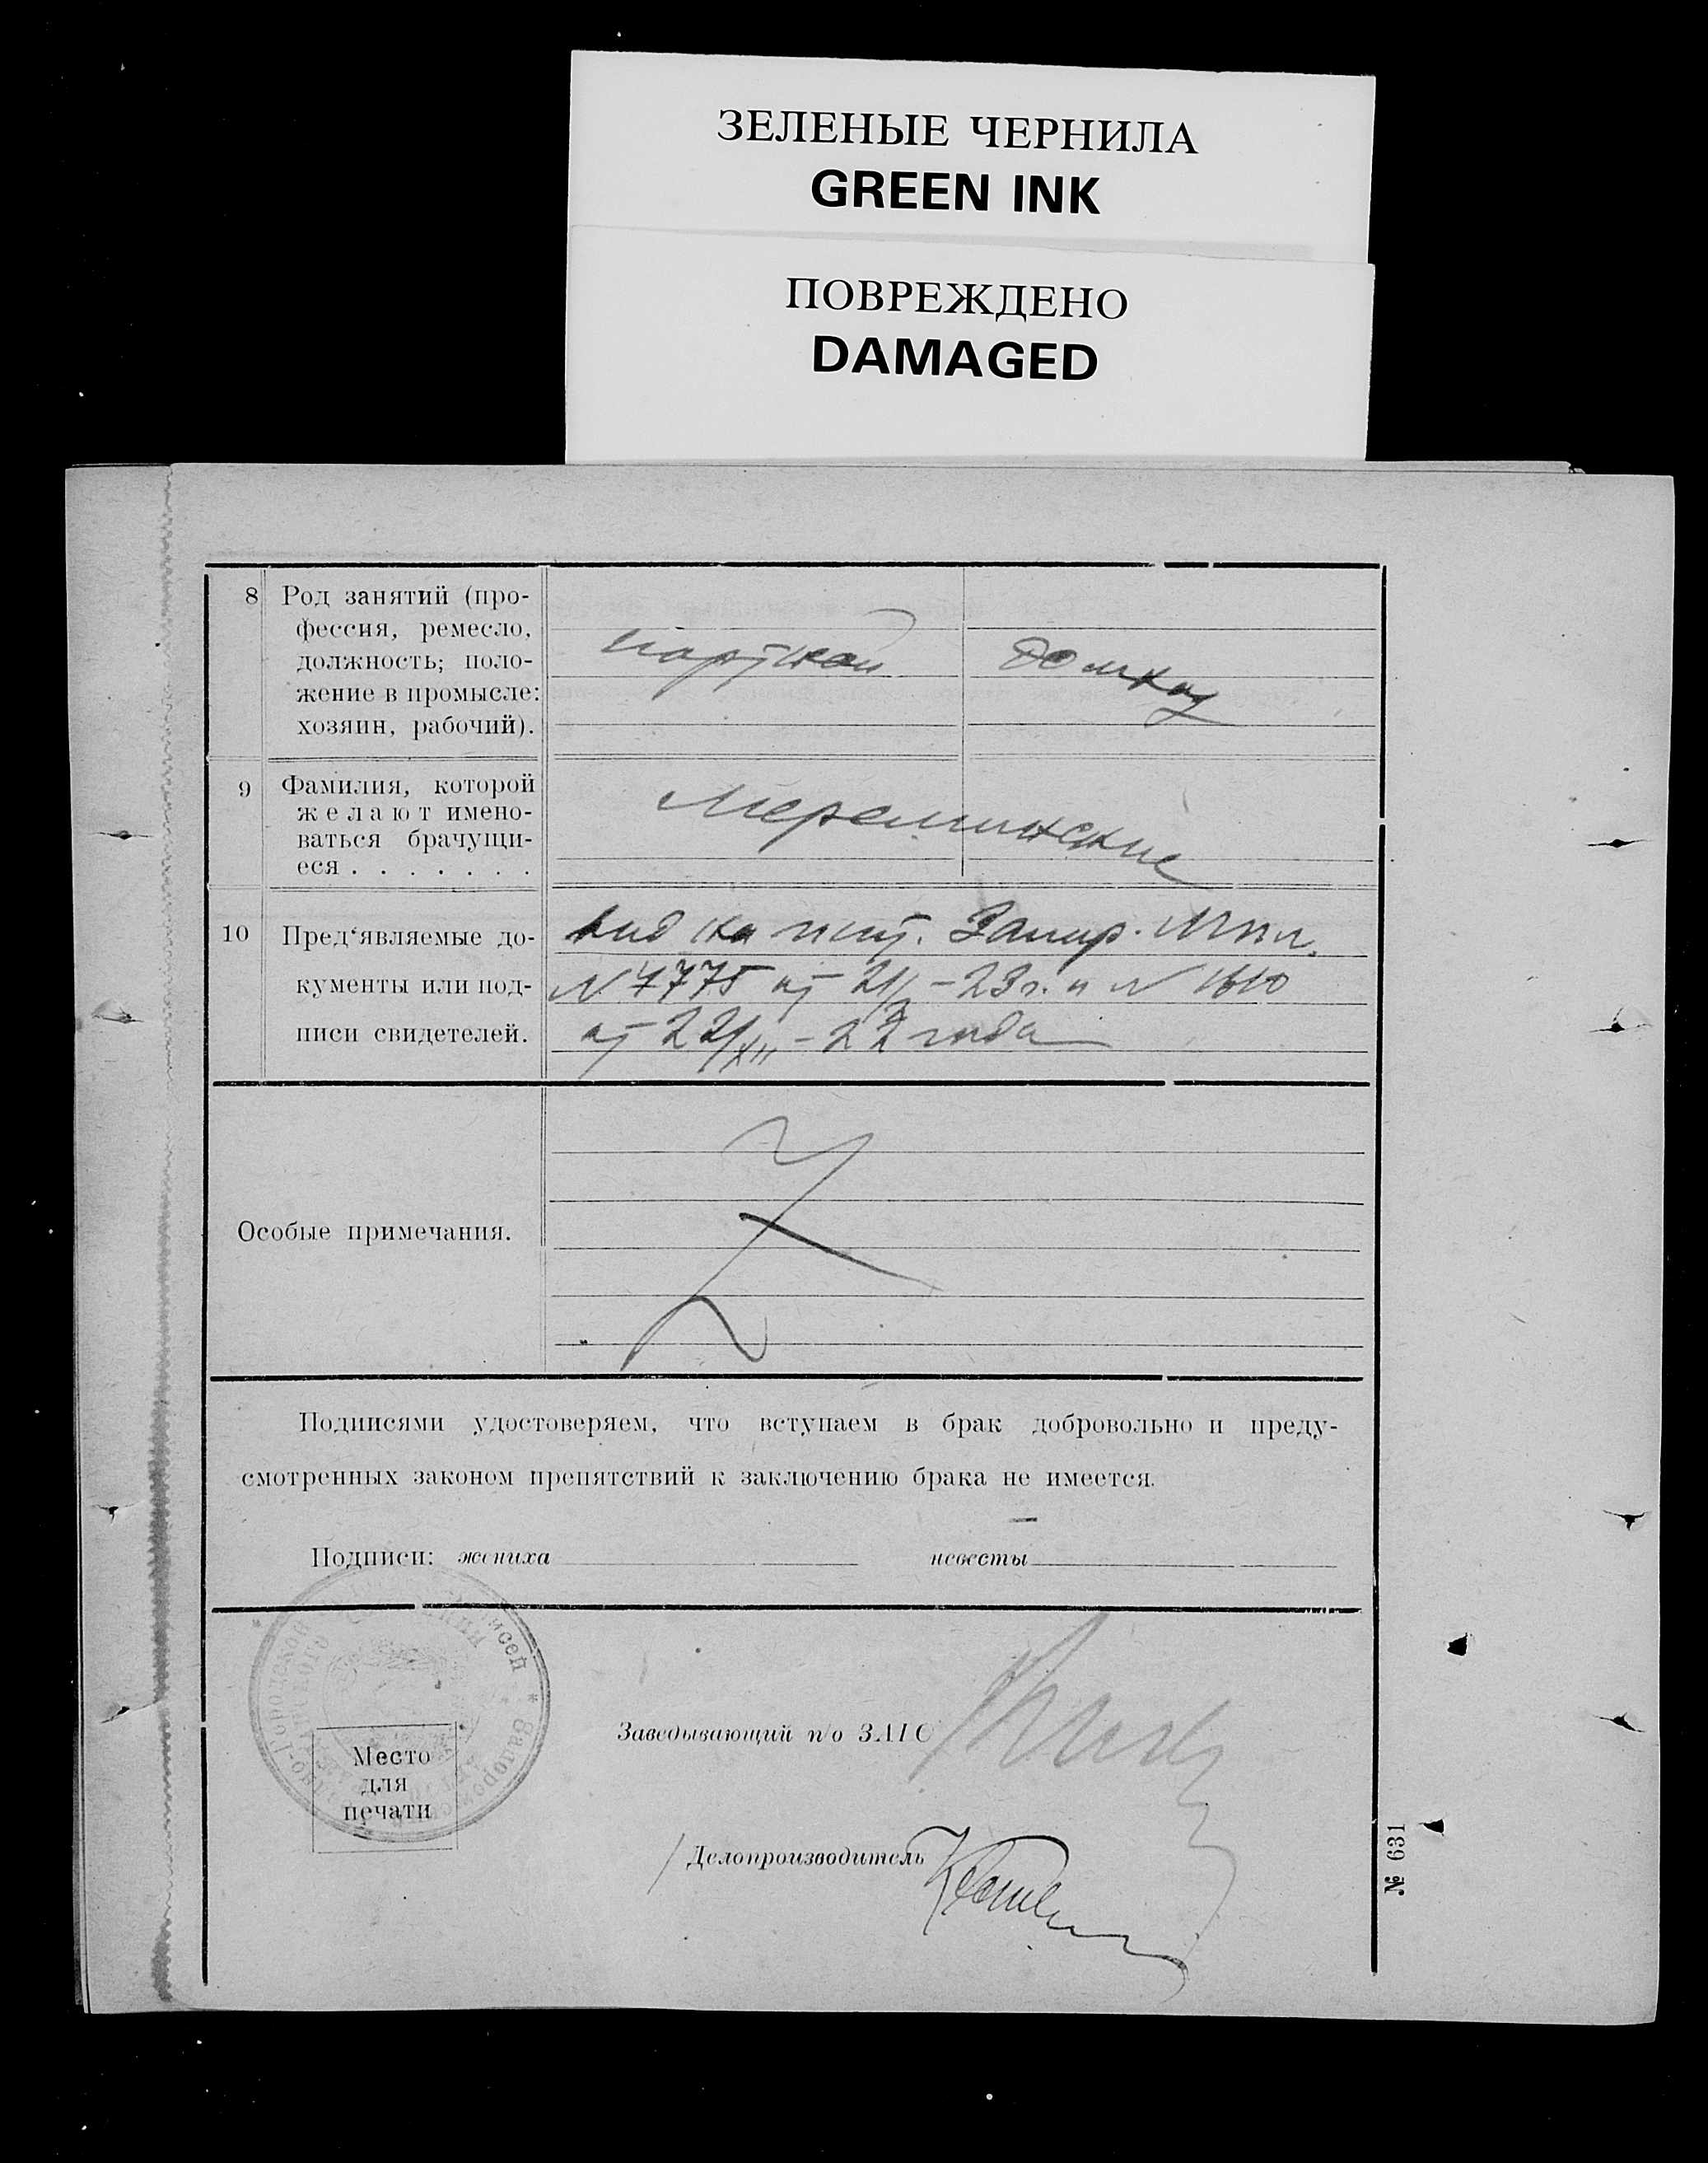 ЗЕЛЕНЫЕ ЧЕРНИЛА
GREEN INK
ПОВРЕЖДЕНО
DAMAGED
8 Род занятий (про-
фессия, ремесло,
должность; поло-
жение в промысле:
хозяин, рабочий).
портной
домхоз
9 Фамилия, которой
желают имено-
ваться брачущи-
еся . . . . . . .
Мереминские
10 Пред‘являемые до-
кументы или под-
писи свидетелей.
вид на жит. Запор.
N 7775 от 21/ – 23 г. и N 1610
от 22/XII – 22 года
Особые примечания.
Подписями удостоверяем, что вступаем в брак добровольно и преду-
смотренных законом препятствий к заключению брака не имеется.
Подписи: жениха невесты
Заведывающий п/о ЗАГС
Место
для
печати
Делопроизводитель
№ 631